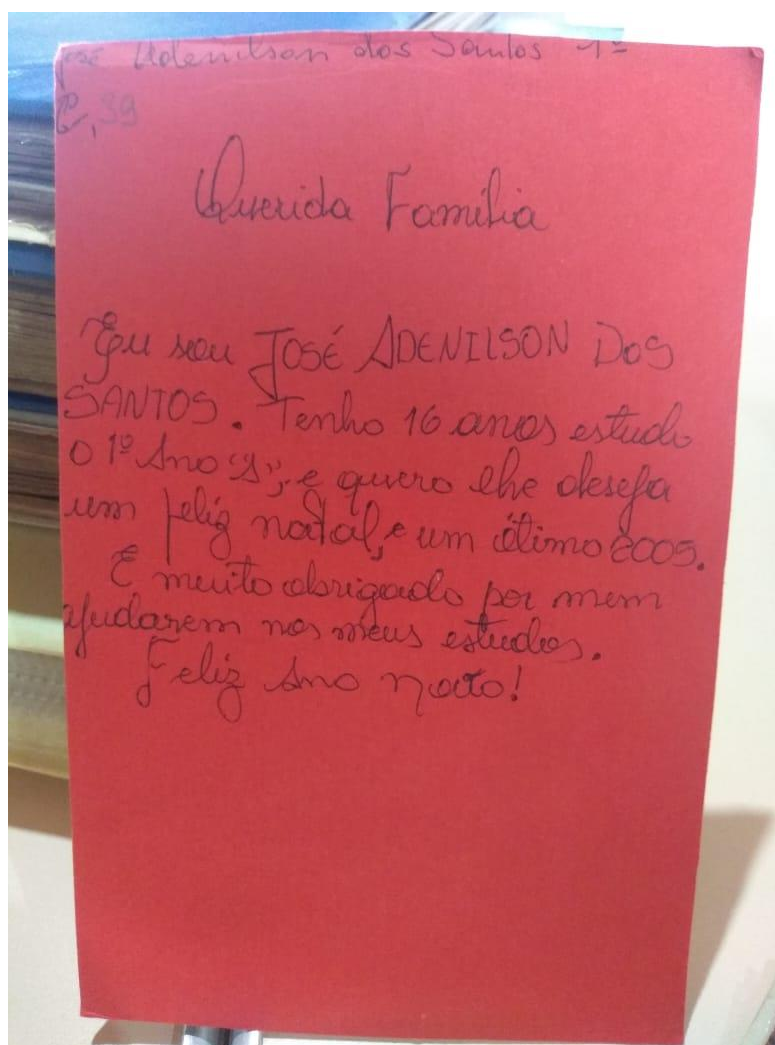 José Adenilson dos Santos 1º
,39
Querida Família
Eu sou JOSÉ ADENILSON DOS
SANTOS. Tenho 16 anos estudo
o 1º Ano "A", e quero lhe deseja
um feliz natal, e um ótimo 2005.
E muito obrigado por mem
ajudarem nos meus estudos.
Feliz Ano novo!